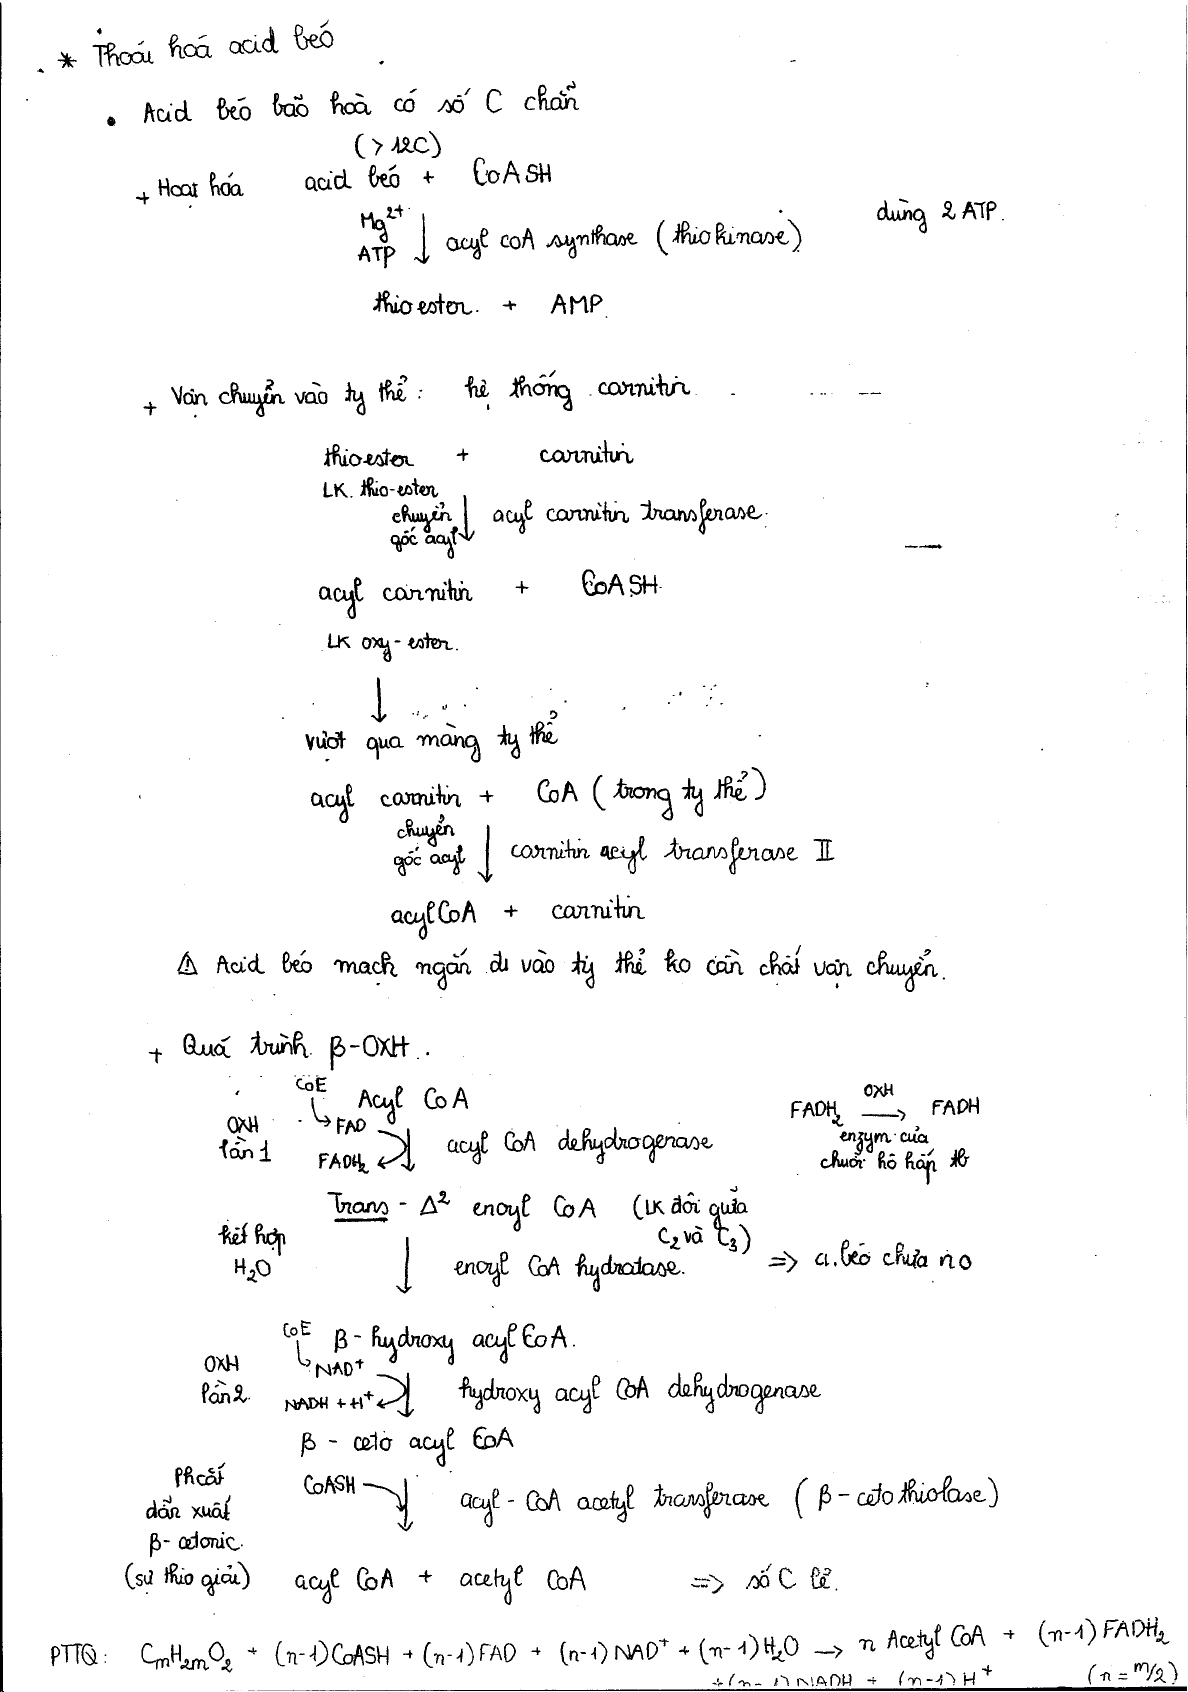 * Thoái hoá acid béo
• Acid béo bão hoà có số C chẵn
(> 12C)
+ Hoạt hóa acid béo + CoASH
Mg2+ dùng 2 ATP.
ATP ↓ acyl coA synthase (thiokinase)
thioester + AMP
+ Vận chuyển vào ty thể : hệ thống carnitin
thioester + carnitin
LK. thio-ester
chuyển ↓ acyl carnitin transferase.
gốc acyl
acyl carnitin + CoASH
LK oxy-ester.
↓
vượt qua màng ty thể
acyl carnitin + CoA (trong ty thể)
chuyển
gốc acyl ↓ carnitin acyl transferase II
acylCoA + carnitin
⚠ Acid béo mạch ngắn đi vào ty thể ko cần chất vận chuyển.
+ Quá trình β-OXH.
CoE Acyl CoA FADH2 OXH → FADH
OXH ↳ FAD enzym của
lần 1 FADH2 ↓ acyl CoA dehydrogenase chuỗi hô hấp tb
Trans - Δ2 enoyl CoA (LK đôi giữa
kết hợp C2 và C3)
H2O ↓ enoyl CoA hydratase. => a.béo chưa no
CoE β-hydroxy acyl CoA.
OXH ↳ NAD+
lần 2. NADH + H+ ↓ hydroxy acyl CoA dehydrogenase
β - ceto acyl CoA
Ph cắt CoASH
dẫn xuất ↓ acyl - CoA acetyl transferase (β-cetothiolase)
β-cetonic.
(sự thio giải) acyl CoA + acetyl CoA => số C lẻ.
PTTQ: CmH2mO2 + (n-1)CoASH + (n-1)FAD + (n-1)NAD+ + (n-1)H2O → n Acetyl CoA + (n-1)FADH2
+(n-1)NADH + (n-1)H+ (n = m/2)